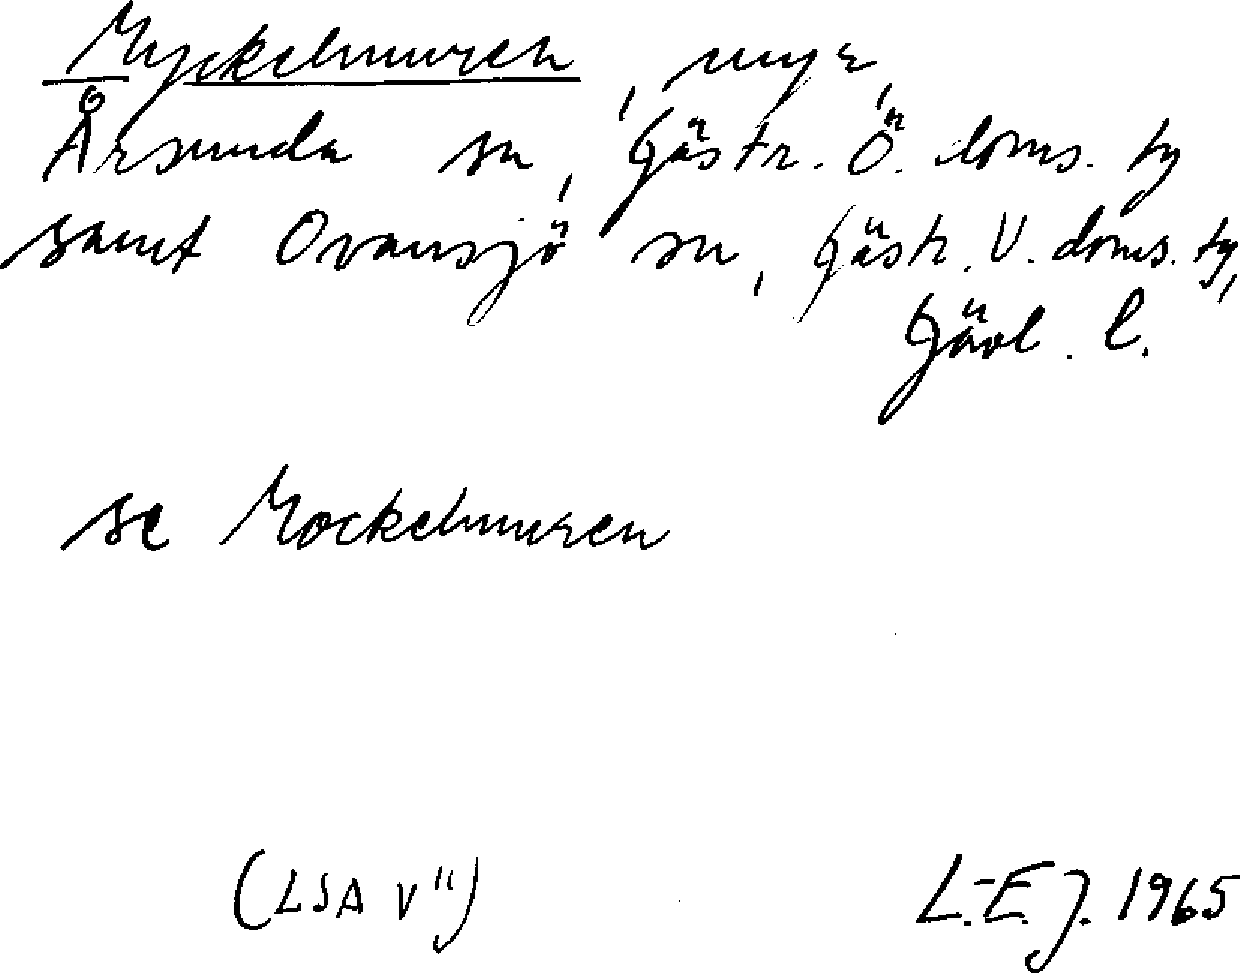 Myckelmuren, myr,
Årsunda sn, Gästr. Ö. doms. tg
samt Ovansjö sn, Gästr. V. doms. tg,
Gävl. l.
se Mockelmuren
(LSA V") L.-E. J. 1965